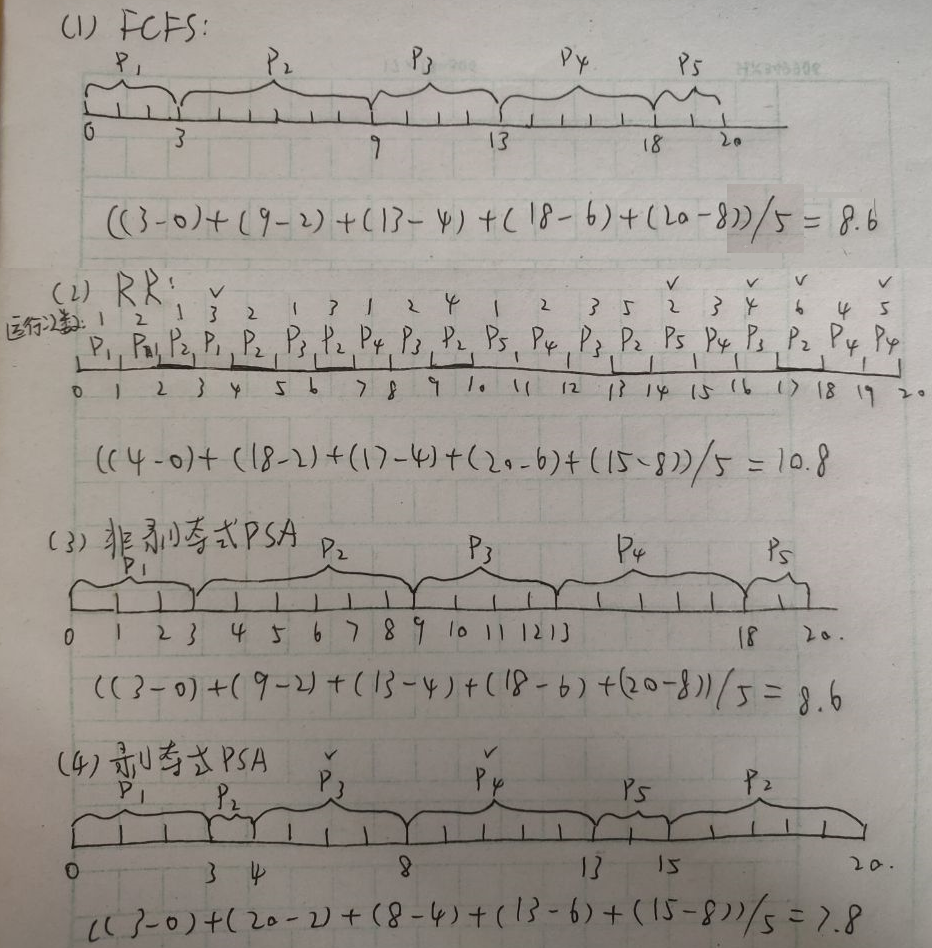 (1) FCFS:
P1 P2 P3 P4 P5
0 3 9 13 18 20
((3-0)+(9-2)+(13-4)+(18-6)+(20-8))/5=8.6
(2) RR:
运行次数: 1 2 1 3 2 1 3 1 2 4 1 2 3 5 2 3 4 6 4 5
P1 P1 P2 P1 P2 P3 P2 P4 P3 P2 P5 P4 P3 P2 P5 P4 P3 P2 P4 P4
0 1 2 3 4 5 6 7 8 9 10 11 12 13 14 15 16 17 18 19 20
((4-0)+(18-2)+(17-4)+(20-6)+(15-8))/5=10.8
(3) 非剥夺式PSA
P1 P2 P3 P4 P5
0 1 2 3 4 5 6 7 8 9 10 11 12 13 18 20.
((3-0)+(9-2)+(13-4)+(18-6)+(20-8))/5=8.6
(4) 剥夺式PSA
P1 P2 P3 P4 P5 P2
0 3 4 8 13 15 20.
((3-0)+(20-2)+(8-4)+(13-6)+(15-8))/5=7.8